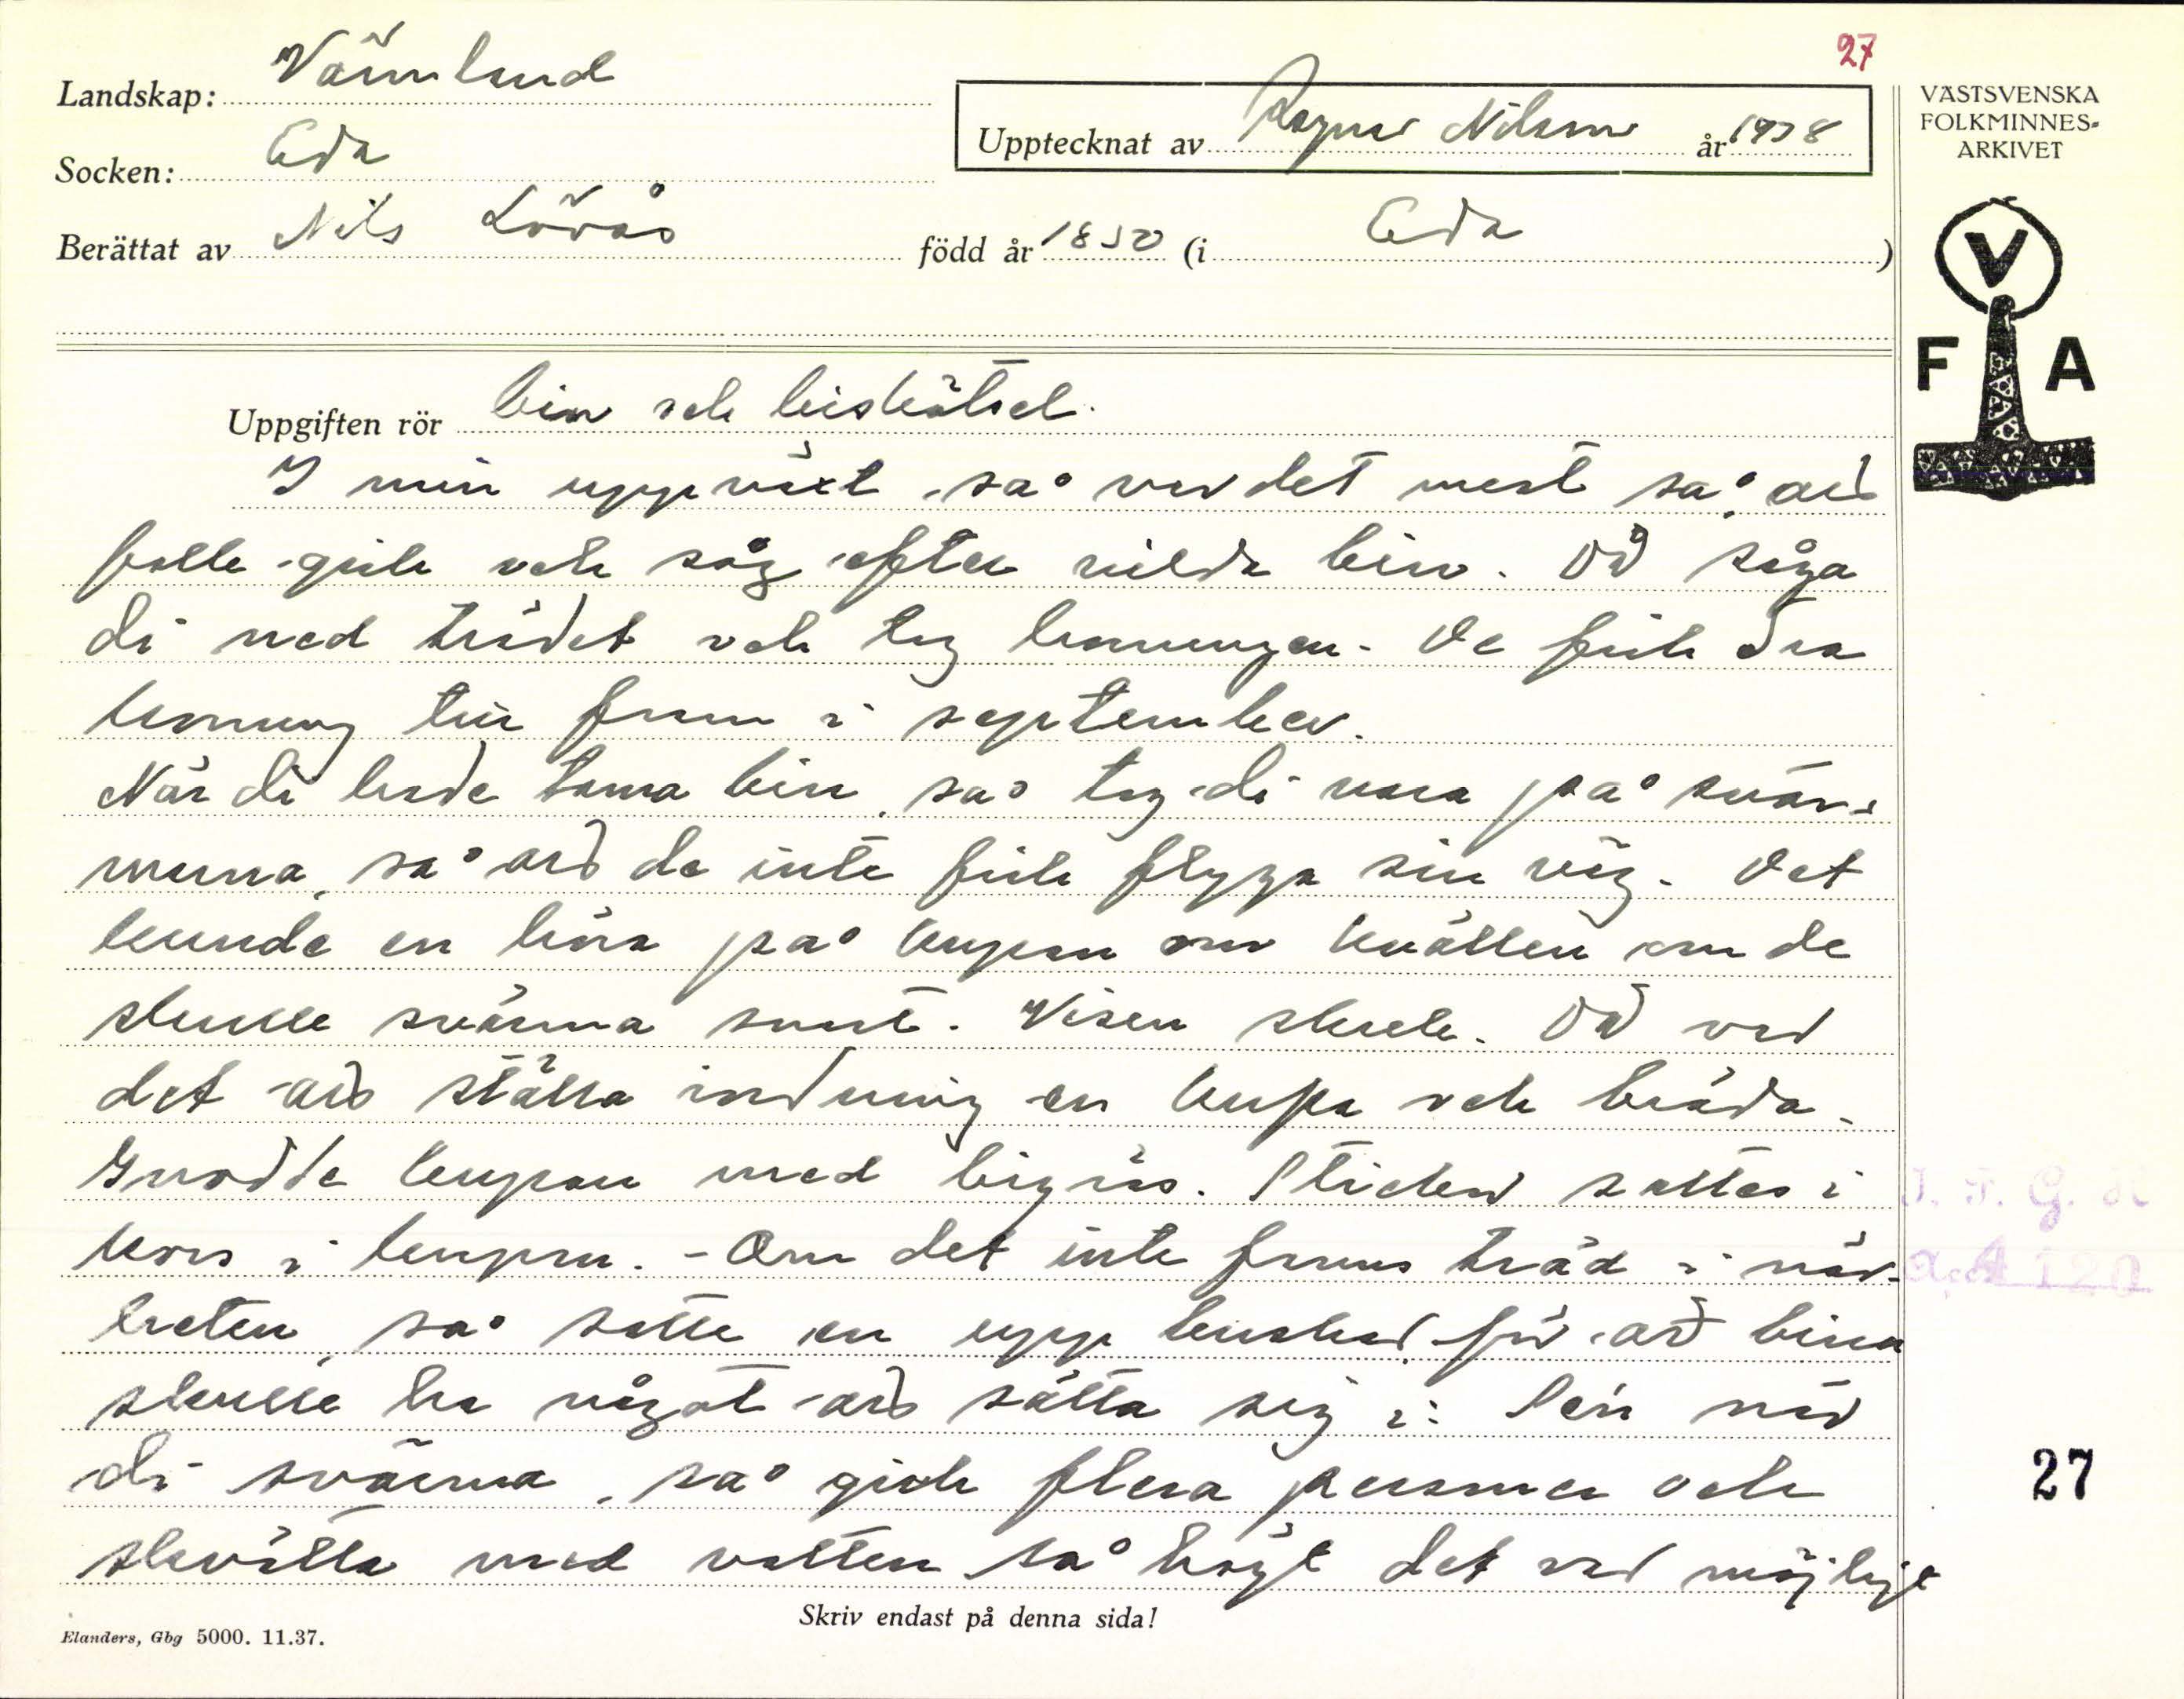 27
Landskap: Värmland
Upptecknat av Ragnar Nilsson år 1938
VÄSTSVENSKA
FOLKMINNES-
ARKIVET
Socken: Eda
Berättat av Nils Lövås född år 1850 (i Eda)
V
F A
Uppgiften rör bin och biskötsel.
I min uppväxt, så var det mest så, att
folk gick och såg efter vilda bin. Då såga
di ned trädet och tog honungen. De fick dra
honung till fram i september.
När di hade tama bin, så tog di vara på svär-
marna, så att de inte fick flyga sin väg. Det
kunde en höra på kupan om kvällen om de
skulle svärma snart. Visen skrek. Då var
det att ställa i ordning en kupa och bräda.
Gnodde kupan med bigräs. Stickor sattes i
kors i kupan. - Om det inte fanns träd i när-
heten, så satte en upp buskar för att bina
skulle ha något att sätta sig i. Sen när
di svärma, så gick flera personer och
skvätta med vatten så högt det var möjligt
J. F. G. H
a.A 120
27
Skriv endast på denna sida!
Elanders, Gbg 5000. 11.37.